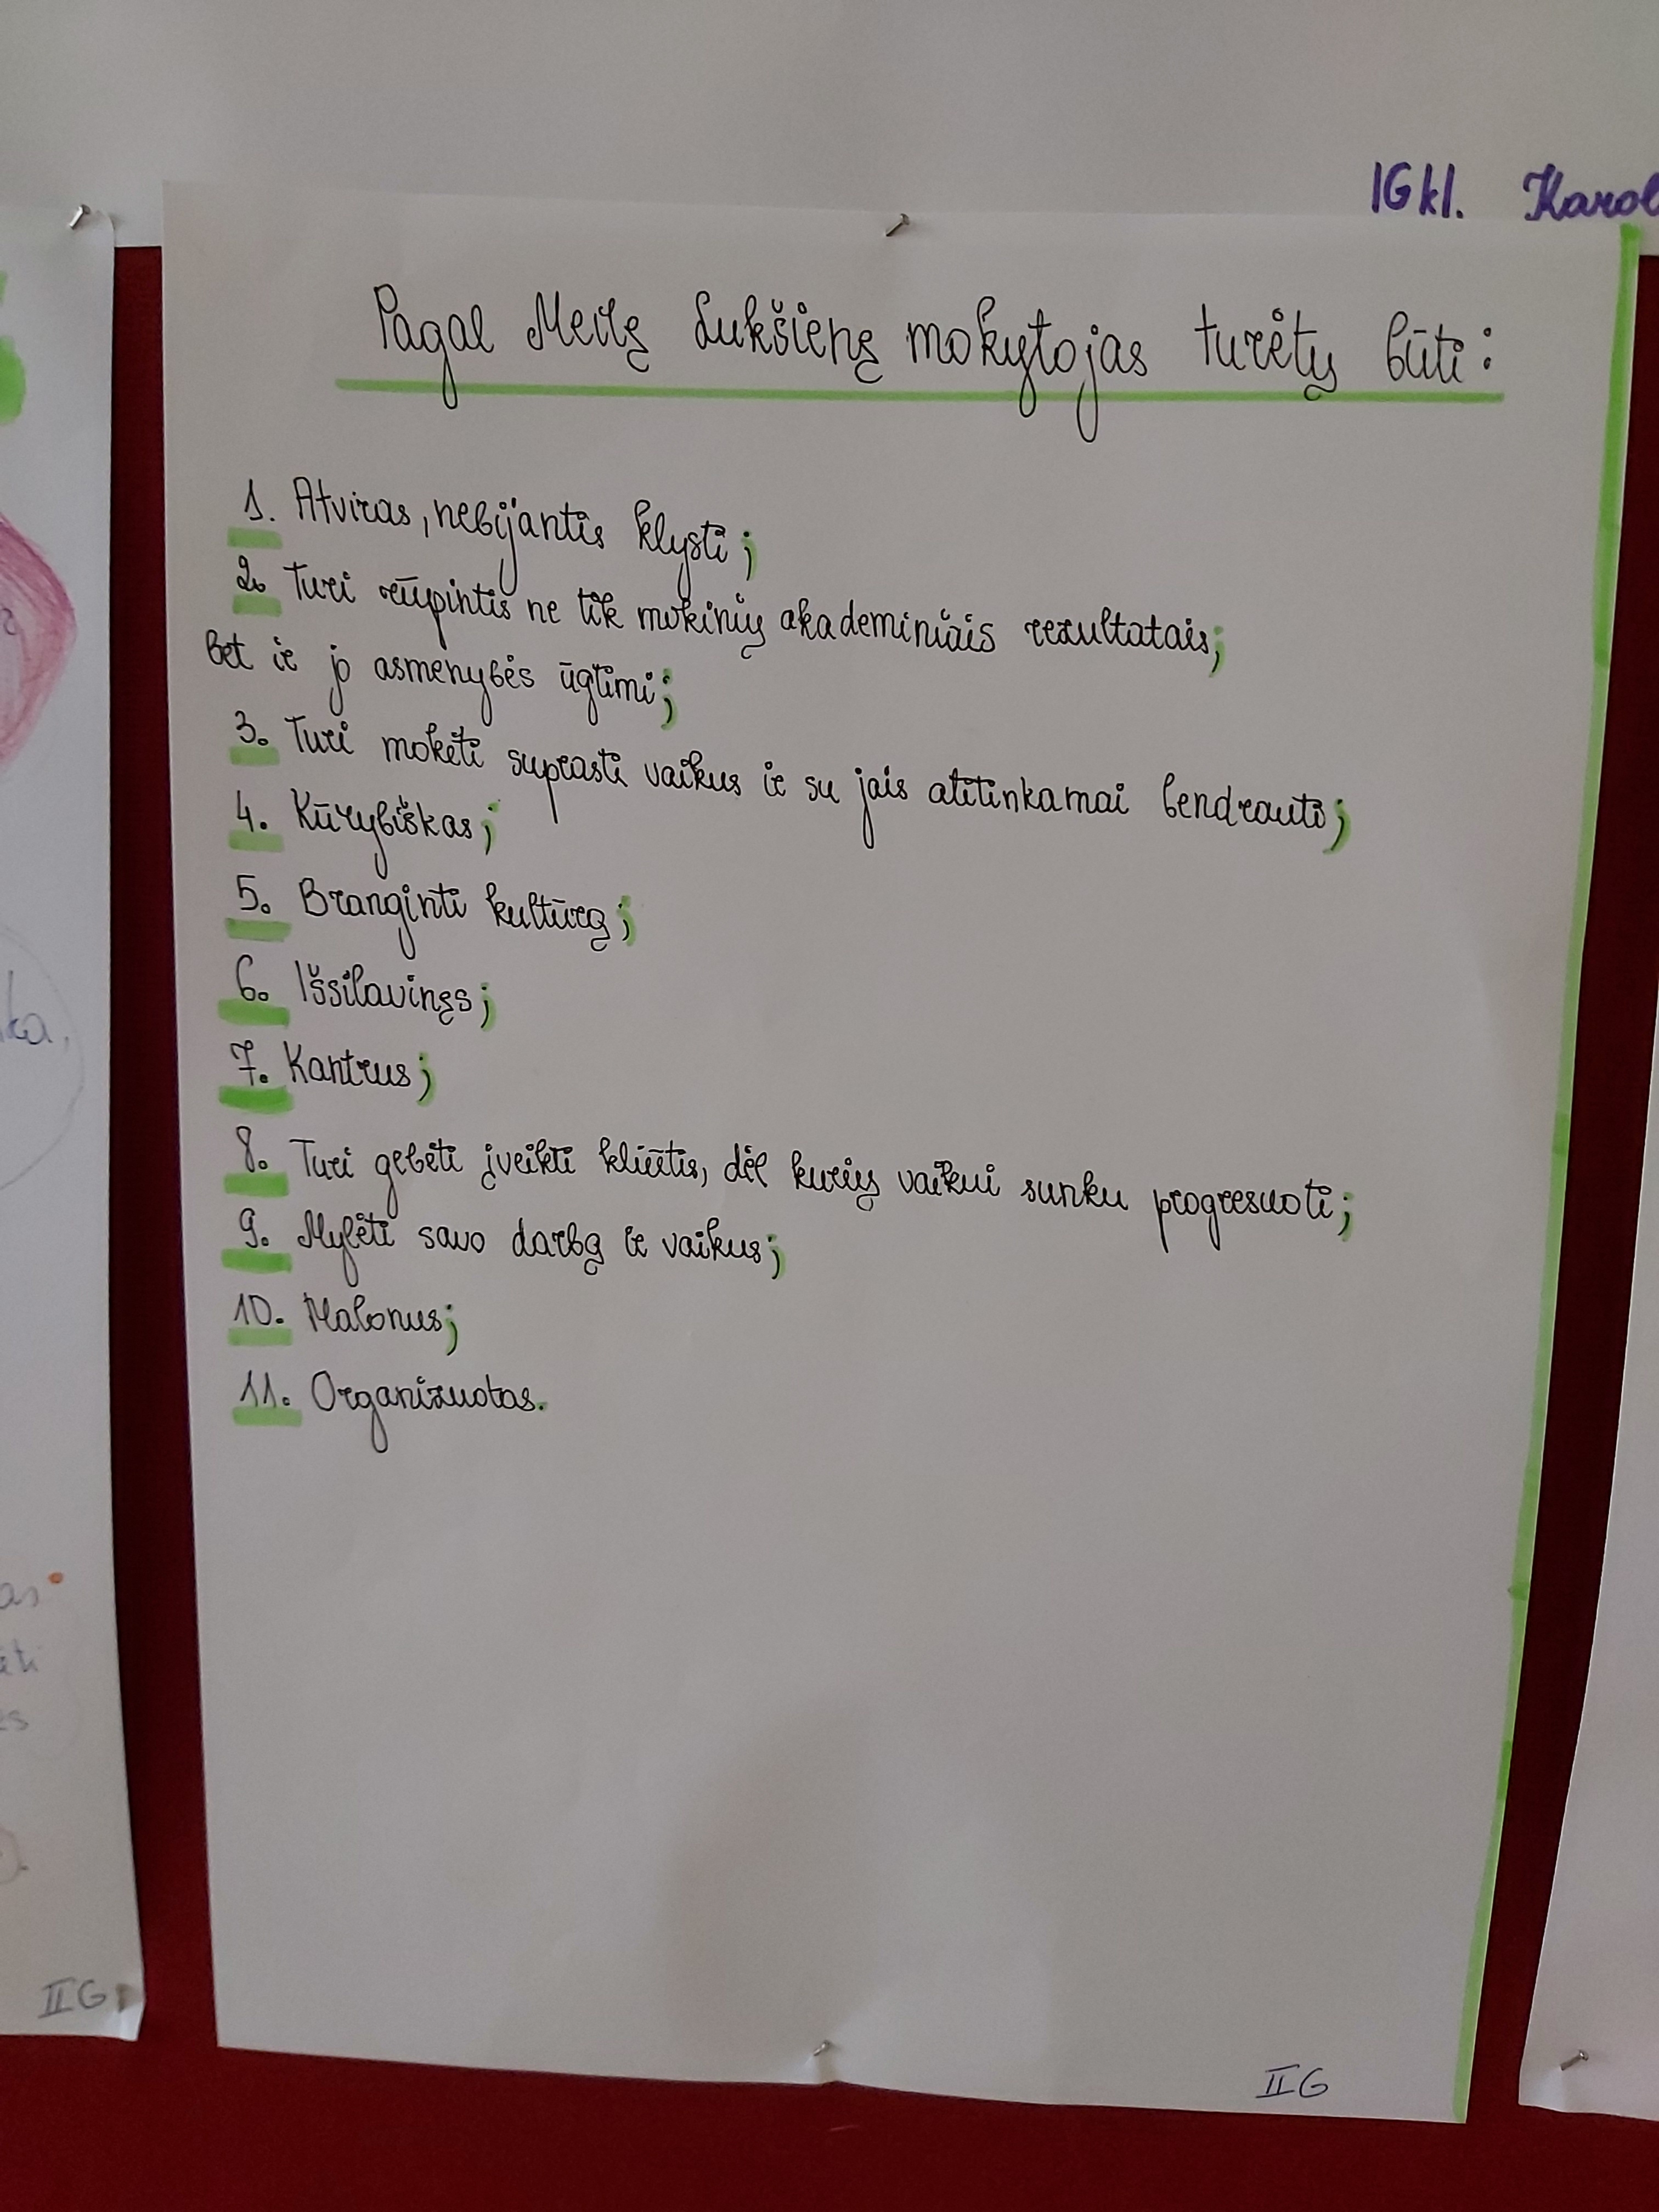 IGkl.
Pagal Meilę Lukšienę mokytojas turėtų būti:
1. Atviras, nebijantis klysti;
2. Turi rūpintis ne tik mokinių akademiniais rezultatais;
bet ir jo asmenybės ūgtimi;
3. Turi mokėti suprasti vaikus ir su jais atitinkamai bendrauti;
4. Kūrybiškas;
5. Branginti kultūrą;
6. Išsilavinęs;
7. Kantrus;
8. Turi gebėti įveikti kliūtis, dėl kurių vaikui sunku progresuoti;
9. Mylėti savo darbą ir vaikus;
10. Malonus;
11. Organizuotas.
IIG
IIG